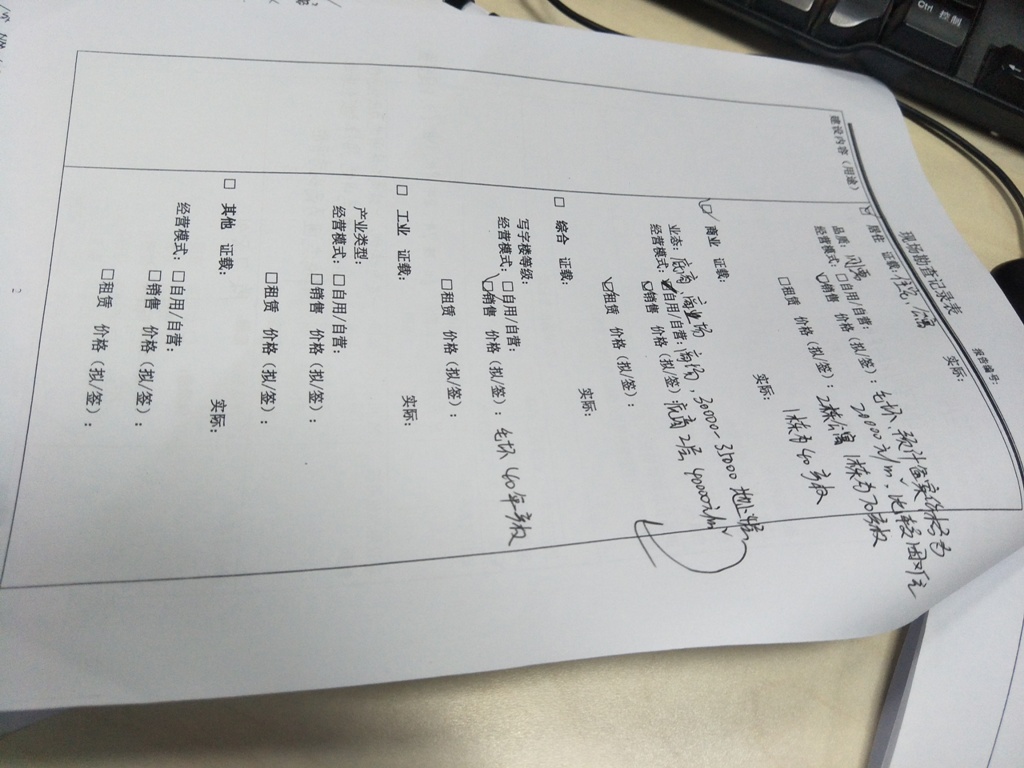 现场勘查记录表
报告编号:
建设内容(用途)
居住 证载: 住宅、公寓 实际:
品质:
经营模式:□自用/自营:
销售 价格(拟/签): 毛坯,预计售卖价格为
28000元/m²,
□租赁 价格(拟/签): 2栋公寓 1栋为70产权
1栋为40产权
商业 证载: 实际:
业态: 底商,商业街 30000-35000
经营模式: 自用/自营: 商场,
销售 价格(拟/签): 底商2层 40000元/m²
租赁 价格(拟/签):
□ 综合 证载: 实际:
写字楼等级:
经营模式:□自用/自营:
销售 价格(拟/签): 毛坯 40年产权
□租赁 价格(拟/签):
□ 工业 证载: 实际:
产业类型:
经营模式:□自用/自营:
□销售 价格(拟/签):
□租赁 价格(拟/签):
□ 其他 证载: 实际:
经营模式:□自用/自营:
□销售 价格(拟/签):
□租赁 价格(拟/签):
2
Ctrl 控制